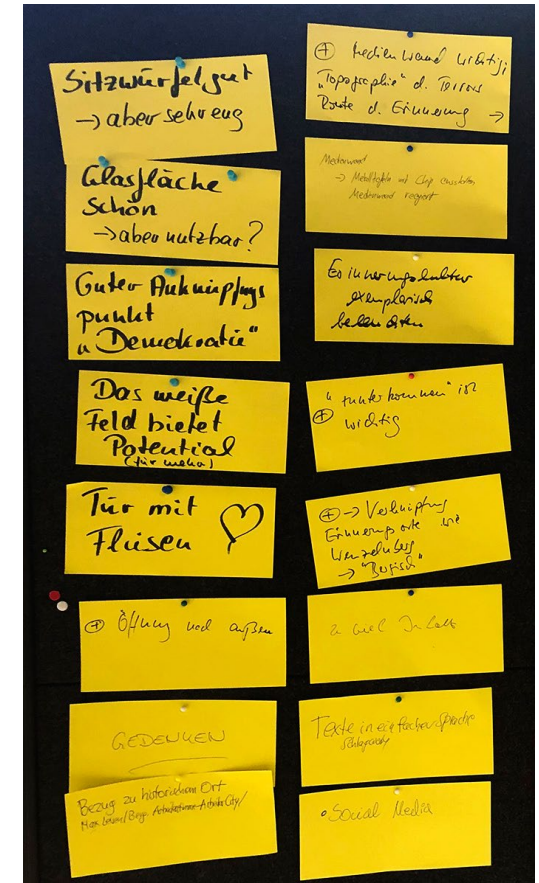 Sitzwürfel gut
→ aber sehr eng
Glasfläche
schön
→ aber nutzbar?
Guter Anknüpfungs
punkt
"Demokratie"
Das weiße
Feld bietet
Potential
(für mehr)
Tür mit
Fliesen
⊕ Öffnung nach außen
GEDENKEN
Bezug zu historischem Ort
⊕ Medienwand wichtig;
"Topographie" d. Terrors
Route d. Erinnerung →
Medienwand
→ Metalltafeln mit Chip
Medienwand reagiert
Erinnerungskultur
exemplarisch
beleuchten
"runterkommen" ist
⊕ wichtig
⊕ → Verknüpfung
Erinnerungsorte wie
Wenzelnberg
zu viel Inhalt
Texte in einfacher Sprache
• Social Media